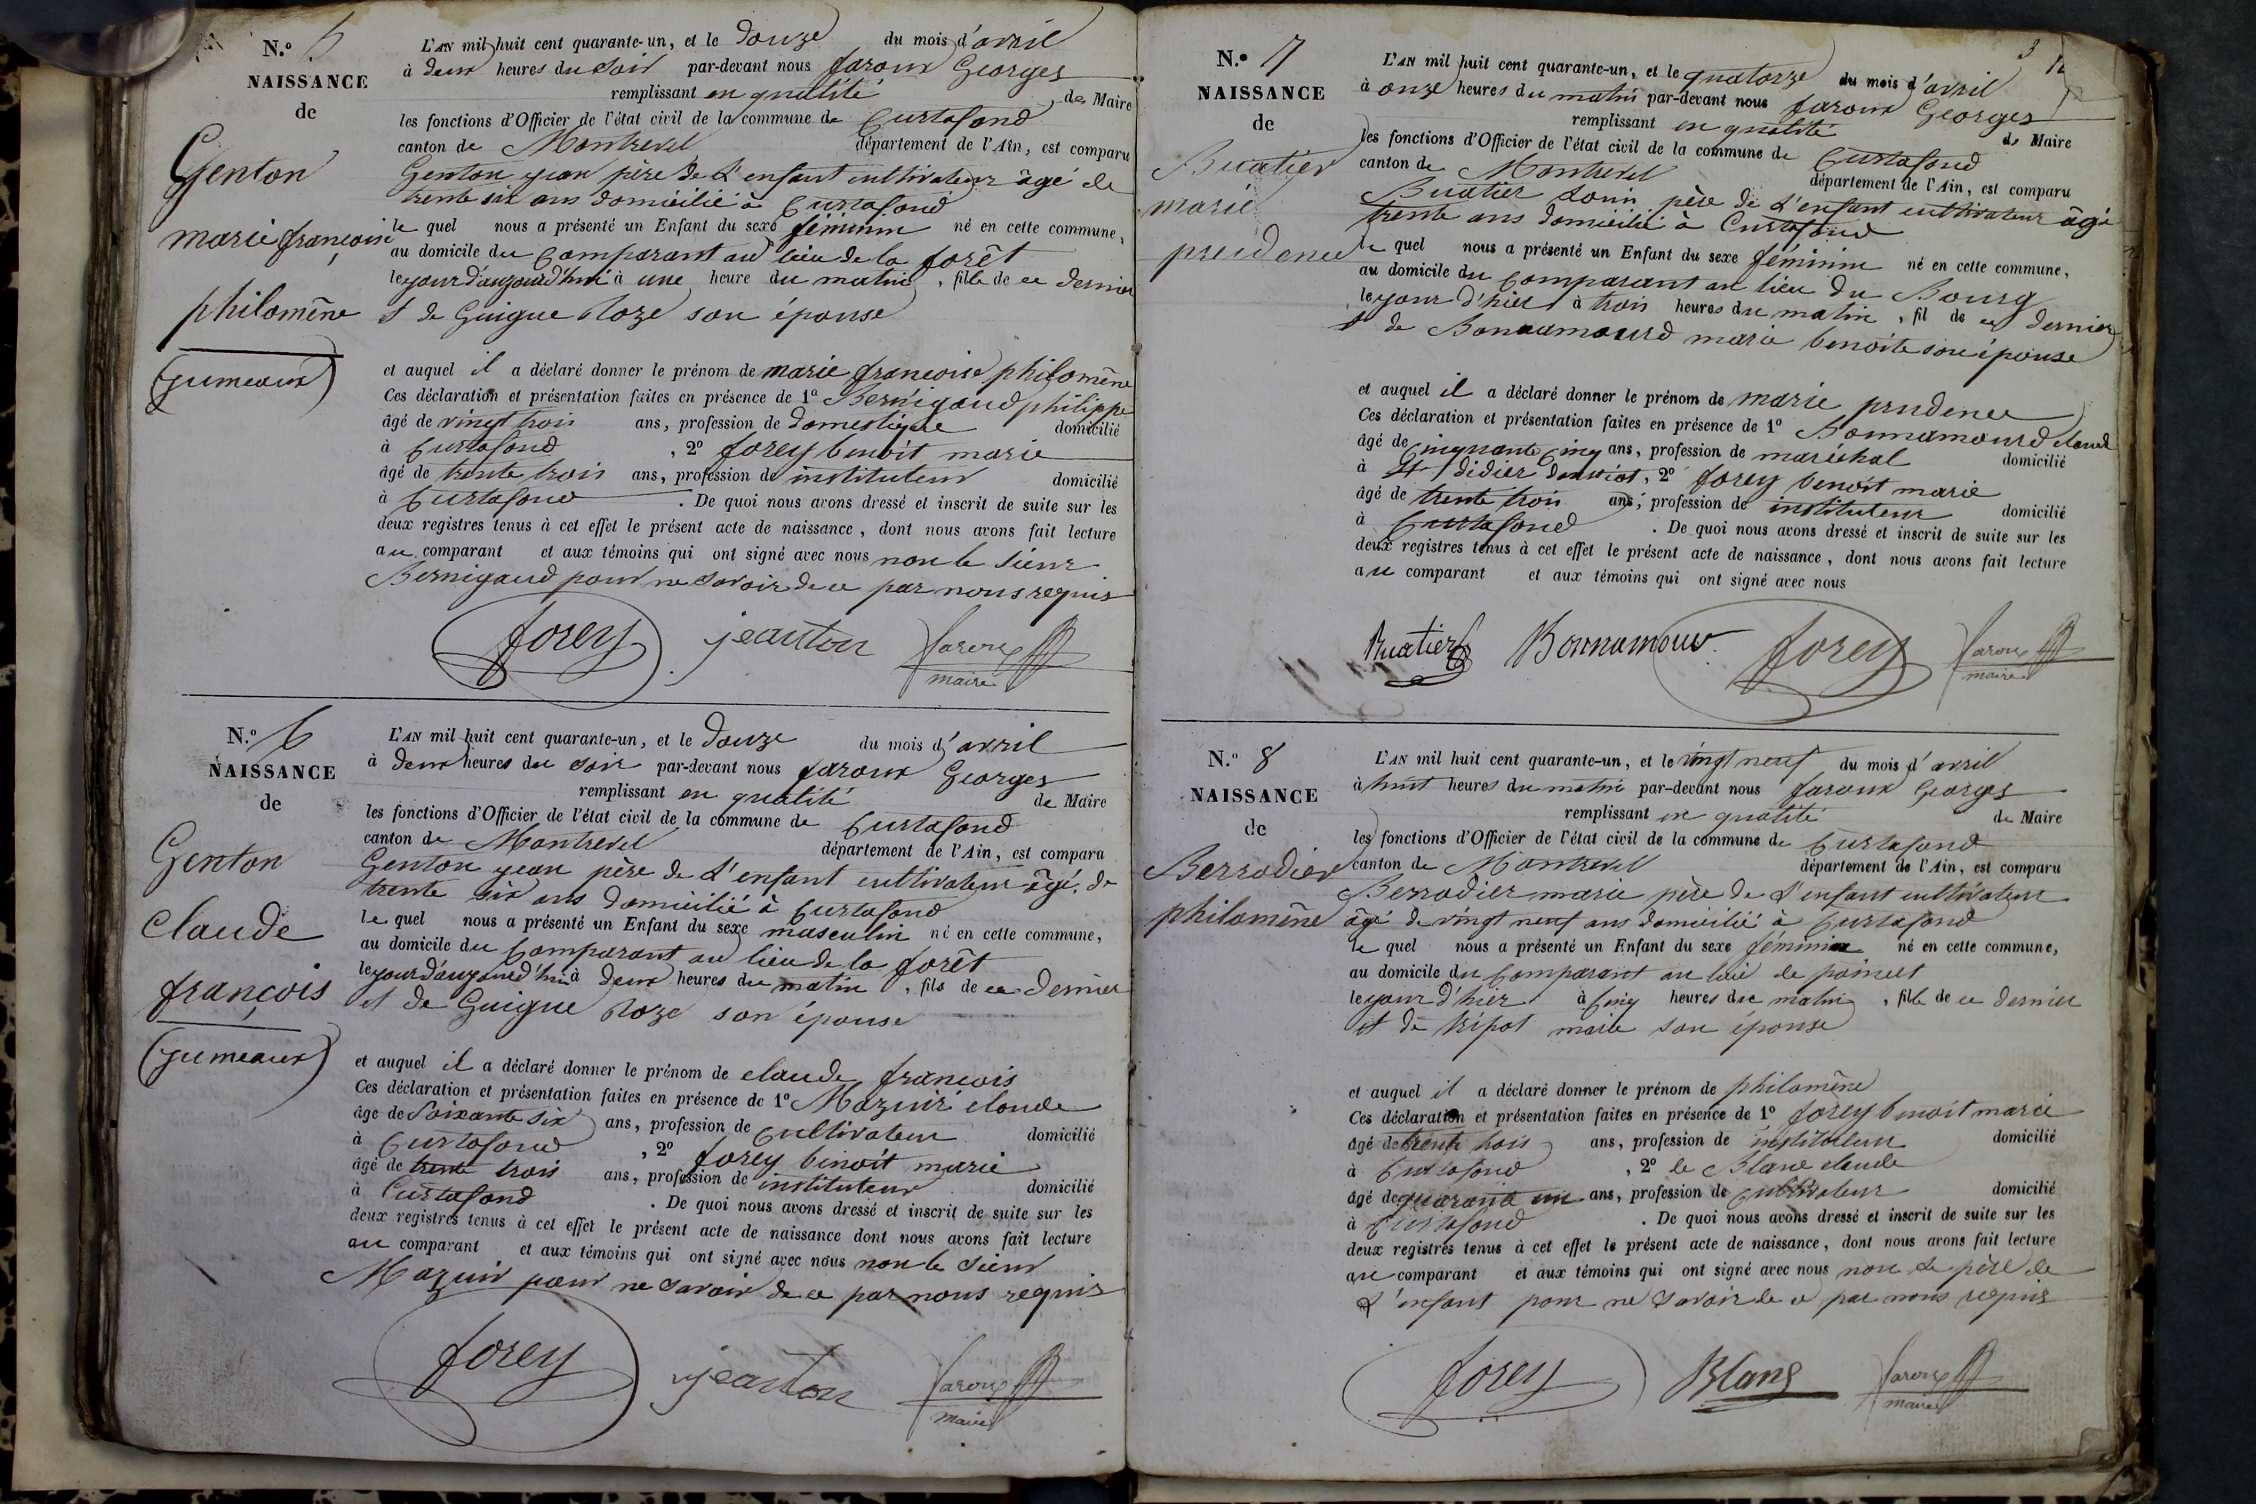 N.o 5
NAISSANCE
de
Genton
marie françoise
philomène
(jumeaux)
L'AN mil huit cent quarante-un, et le Douze du mois d'avril
à deux heures du soir par-devant nous faroux Georges
remplissant en qualité de Maire
les fonctions d'Officier de l'état civil de la commune de Curtafond
canton de Montrevel département de l'Ain, est comparu
Genton jean père de L'enfant cultivateur âgé de
trente six ans domicilié à Curtafond
le quel nous a présenté un Enfant du sexe féminin né en cette commune,
au domicile du Comparant au lieu de la forêt
le jour d'aujourd'hui à une heure du matin, fille de ce dernier
et de Guigue Roze son épouse
et auquel il a déclaré donner le prénom de marie françoise philomène
Ces déclaration et présentation faites en présence de 1º Bernigaud philippe
âgé de vingt trois ans, profession de domestique domicilié
à Curtafond, 2º forey benoit marie
âgé de trente trois ans, profession de instituteur domicilié
à Curtafond. De quoi nous avons dressé et inscrit de suite sur les
deux registres tenus à cet effet le présent acte de naissance, dont nous avons fait lecture
au comparant et aux témoins qui ont signé avec nous non le sieur
Bernigaud pour ne savoir de ce par nous requis
forey jeanton faroux
maire
N.o 6
NAISSANCE
de
Genton
claude
françois
(jumeaux)
L'AN mil huit cent quarante-un, et le Douze du mois d'avril
à deux heures du soir par-devant nous faroux Georges
remplissant en qualité de Maire
les fonctions d'Officier de l'état civil de la commune de Curtafond
canton de Montrevel département de l'Ain, est comparu
Genton jean père de L'enfant cultivateur âgé de
trente six ans domicilié à Curtafond
le quel nous a présenté un Enfant du sexe masculin né en cette commune,
au domicile du Comparant au lieu de la forêt
le jour d'aujourd'hui à deux heures du matin, fils de ce dernier
et de Guigue Roze son épouse
et auquel il a déclaré donner le prénom de claude françois
Ces déclaration et présentation faites en présence de 1º Mazuir claude
âgé de soixante six ans, profession de Cultivateur domicilié
à Curtafond, 2º forey benoit marie
âgé de trente trois ans, profession de instituteur domicilié
à Curtafond. De quoi nous avons dressé et inscrit de suite sur les
deux registres tenus à cet effet le présent acte de naissance dont nous avons fait lecture
au comparant et aux témoins qui ont signé avec nous non le sieur
Mazuir pour ne savoir de ce par nous requis
forey jeanton faroux
maire
3
N.o 7
NAISSANCE
de
Buatier
marie
prudence
L'AN mil huit cent quarante-un, et le quatorze du mois d'avril
à onze heures du matin par-devant nous faroux Georges
remplissant en qualité de Maire
les fonctions d'Officier de l'état civil de la commune de Curtafond
canton de Montrevel département de l'Ain, est comparu
Buatier père de L'enfant cultivateur âgé
trente ans domicilié à Curtafond
le quel nous a présenté un Enfant du sexe féminin né en cette commune,
au domicile du comparant au lieu du Bourg
le jour d'hier à trois heures du matin, fil de ce dernier
et de Bonnamourd marie benoite son épouse
et auquel il a déclaré donner le prénom de marie prudence
Ces déclaration et présentation faites en présence de 1º Bonnamourd claude
âgé de Cinquante Cinq ans, profession de maréchal domicilié
à St didier daussiat, 2º forey benoit marie
âgé de trente trois ans, profession de instituteur domicilié
à Curtafond. De quoi nous avons dressé et inscrit de suite sur les
deux registres tenus à cet effet le présent acte de naissance, dont nous avons fait lecture
au comparant et aux témoins qui ont signé avec nous
Buatier Bonnamour forey faroux
maire
N.o 8
NAISSANCE
de
Berrodier
philomène
L'AN mil huit cent quarante-un, et le vingt neuf du mois d'avril
à huit heures du matin par-devant nous faroux Georges
remplissant en qualité de Maire
les fonctions d'Officier de l'état civil de la commune de Curtafond
canton de Montrevel département de l'Ain, est comparu
Berrodier marie père de L'enfant cultivateur
âgé de vingt neuf ans domicilié à Curtafond
le quel nous a présenté un Enfant du sexe féminin né en cette commune,
au domicile du Comparant au lieu de
le jour d'hier à Cinq heures du matin, fille de ce dernier
et de tripot marie son épouse
et auquel il a déclaré donner le prénom de philomène
Ces déclaration et présentation faites en présence de 1º forey benoit marie
âgé de trente trois ans, profession de instituteur domicilié
à Curtafond, 2º le Blanc claude
âgé de quarante un ans, profession de Cultivateur domicilié
à Curtafond. De quoi nous avons dressé et inscrit de suite sur les
deux registres tenus à cet effet le présent acte de naissance, dont nous avons fait lecture
au comparant et aux témoins qui ont signé avec nous non le père de
L'enfant pour ne savoir de ce par nous requis
forey Blanc faroux
maire